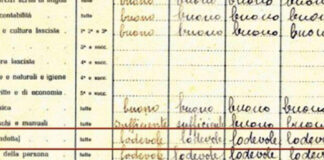 buono buono buono buono
ontabilità tutte buono buono buono buono
e cultura fascista 1ª 2ª e 3ª buono buono buono buono
4ª e succ. buono buono buono
fascista 1ª 2ª e 3ª
4ª e succ.
e naturali e igiene
4ª e succ.
ritto e di economia
tutte buono buono buono buono
e manuali tutte sufficiente sufficiente buono buono
tutte lodevole lodevole lodevole lodevole
della persona tutte lodevole lodevole lodevole lodevole